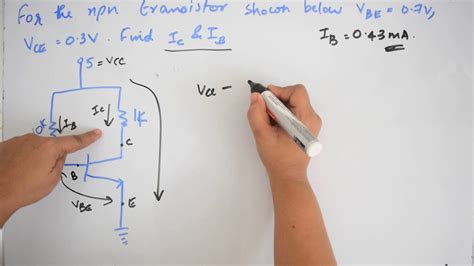 For the npn transistor shown below VBE = 0.7V,
VCE = 0.3V. Find IC & IB
IB = 0.43mA.
5 = VCC
VCC -
IB
IC
1K
C
B
VBE
E